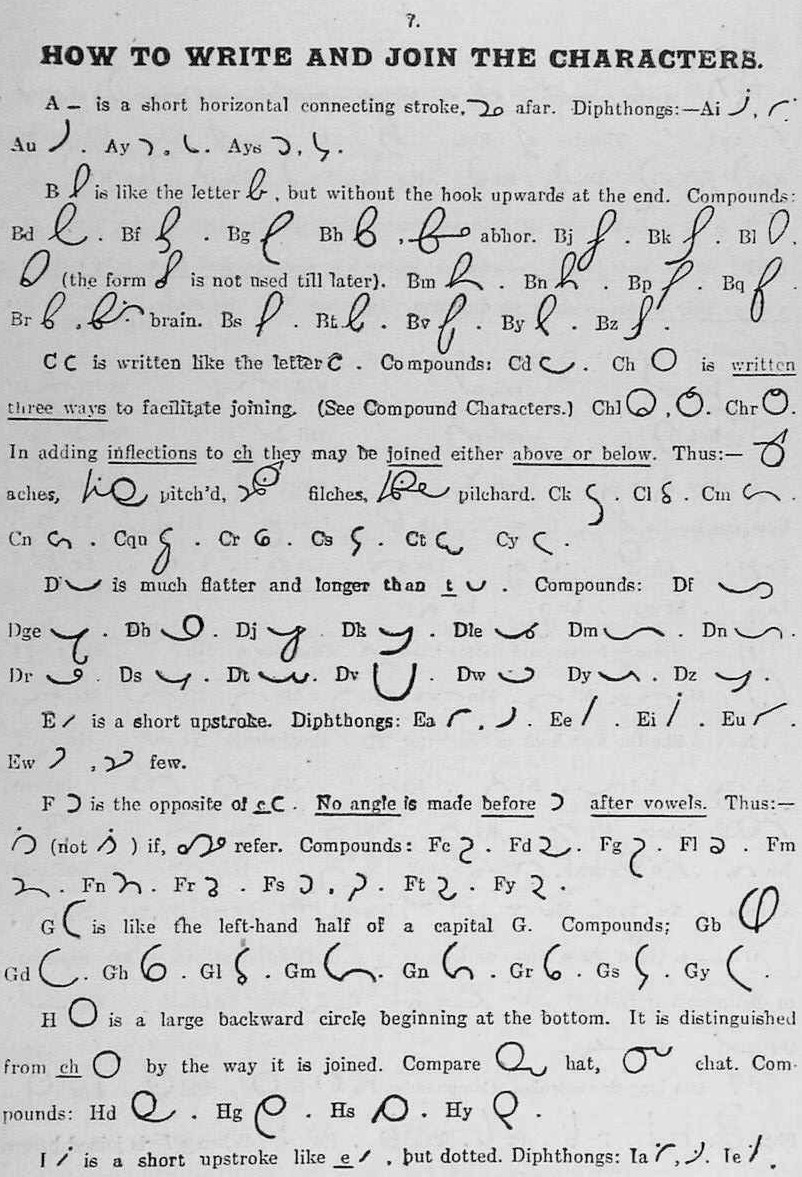 7.
HOW TO WRITE AND JOIN THE CHARACTERS.
A is a short horizontal connecting stroke, afar. Diphthongs:—Ai ,
Au . Ay , . Ays , .
B is like the letter , but without the hook upwards at the end. Compounds:
Bd . Bf . Bg Bh , abhor. Bj . Bk . Bl ,
(the form is not used till later). Bm . Bn . Bp . Bq .
Br , brain. Bs . Bt . Bv . By . Bz .
C is written like the letter . Compounds: Cd . Ch is written
three ways to facilitate joining. (See Compound Characters.) Chl , . Chr .
In adding inflections to ch they may be joined either above or below. Thus:—
aches, pitch'd, filches, pilchard. Ck . Cl . Cm .
Cn . Cqu . Cr . Cs . Ct Cy .
D is much flatter and longer than t . Compounds: Df
Dge . Dh . Dj Dk . Dle Dm . Dn .
Dr . Ds . Dt . Dv . Dw Dy . Dz .
E is a short upstroke. Diphthongs: Ea , . Ee . Ei . Eu .
Ew , few.
F is the opposite of c . No angle is made before after vowels. Thus:—
(not ) if, refer. Compounds: Fc . Fd . Fg . Fl . Fm
. Fn . Fr . Fs , . Ft . Fy .
G is like the left-hand half of a capital G. Compounds; Gb
Gd . Gh . Gl . Gm . Gn . Gr . Gs . Gy .
H is a large backward circle beginning at the bottom. It is distinguished
from ch by the way it is joined. Compare hat, chat. Com-
pounds: Hd . Hg . Hs . Hy .
I is a short upstroke like e , but dotted. Diphthongs: Ia , . Ie .